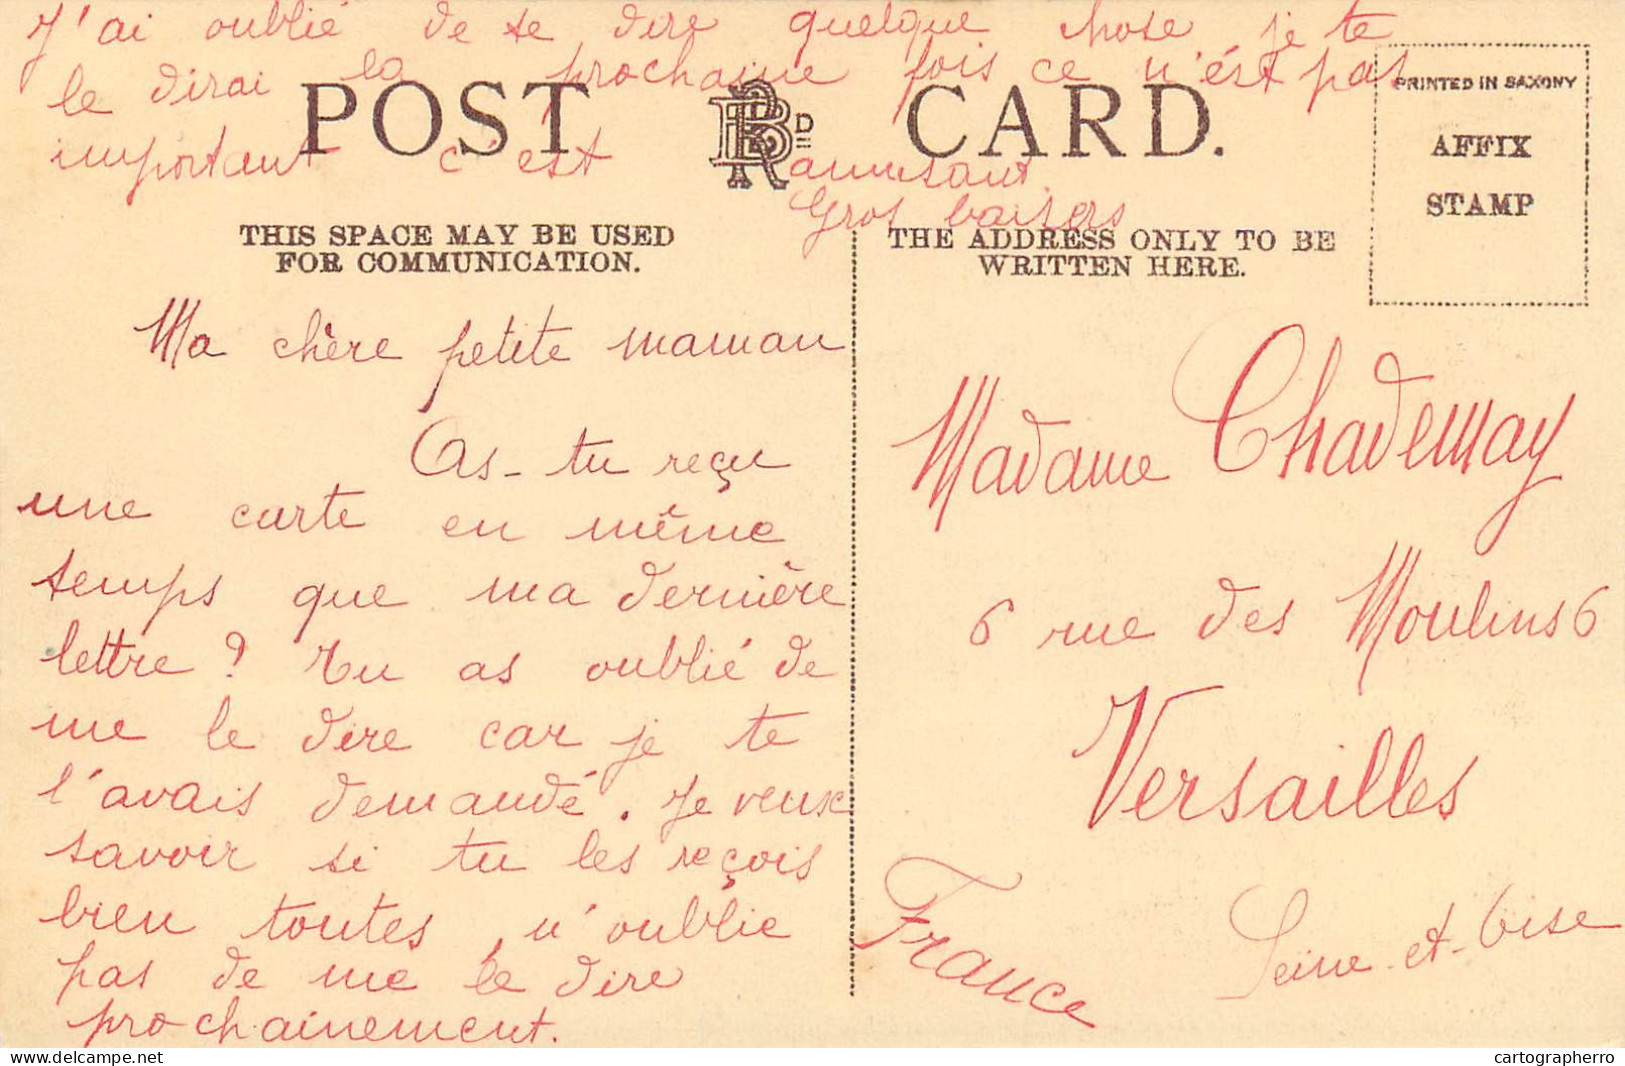 J'ai oublié de te dire quelque chose je te
le dirai la prochaine fois ce n'ést pas
important c'est amusant
Gros baisers
POST CARD.
RD
THIS SPACE MAY BE USED
FOR COMMUNICATION.
THE ADDRESS ONLY TO BE
WRITTEN HERE.
PRINTED IN SAXONY
AFFIX
STAMP
Ma chère petite maman
As-tu reçu
une carte en même
temps que ma dernière
lettre ? Tu as oublié de
me le dire car je te
l'avais demandé. Je veux
savoir si tu les reçois
bien toutes, n'oublie
pas de me le dire
prochainement.
Madame Chademay
6 rue des Moulins 6
Versailles
Seine-et-Oise
France
cartographerro